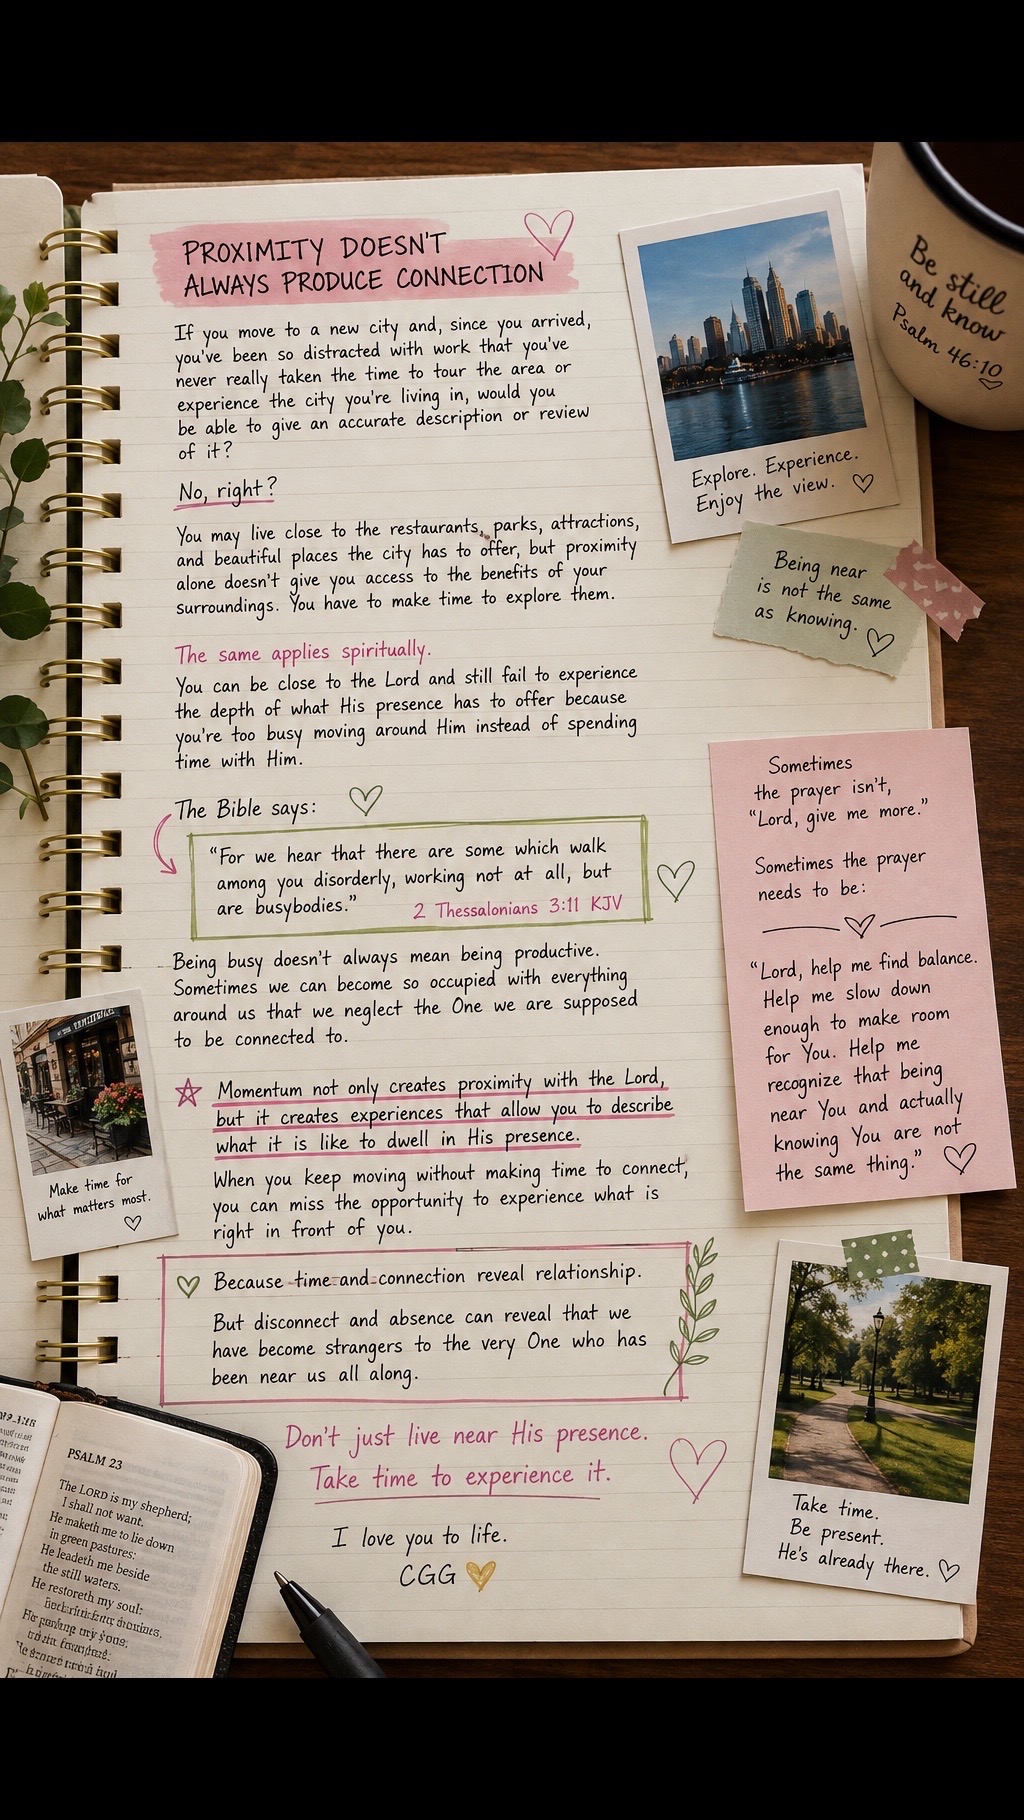 PROXIMITY DOESN'T
ALWAYS PRODUCE CONNECTION
If you move to a new city and, since you arrived,
you've been so distracted with work that you've
never really taken the time to tour the area or
experience the city you're living in, would you
be able to give an accurate description or review
of it?
No, right?
You may live close to the restaurants, parks, attractions,
and beautiful places the city has to offer, but proximity
alone doesn't give you access to the benefits of your
surroundings. You have to make time to explore them.
The same applies spiritually.
You can be close to the Lord and still fail to experience
the depth of what His presence has to offer because
you're too busy moving around Him instead of spending
time with Him.
The Bible says:
"For we hear that there are some which walk
among you disorderly, working not at all, but
are busybodies."
2 Thessalonians 3:11 KJV
Being busy doesn't always mean being productive.
Sometimes we can become so occupied with everything
around us that we neglect the One we are supposed
to be connected to.
Momentum not only creates proximity with the Lord,
but it creates experiences that allow you to describe
what it is like to dwell in His presence.
When you keep moving without making time to connect,
you can miss the opportunity to experience what is
right in front of you.
Because time and connection reveal relationship.
But disconnect and absence can reveal that we
have become strangers to the very One who has
been near us all along.
Don't just live near His presence.
Take time to experience it.
I love you to life.
CGG
Explore. Experience.
Enjoy the view.
Be still
and know
Psalm 46:10
Being near
is not the same
as knowing.
Sometimes
the prayer isn't,
"Lord, give me more."
Sometimes the prayer
needs to be:
"Lord, help me find balance.
Help me slow down
enough to make room
for You. Help me
recognize that being
near You and actually
knowing You are not
the same thing."
Make time for
what matters most.
Take time.
Be present.
He's already there.
PSALM 23
The LORD is my shepherd;
I shall not want.
He maketh me to lie down
in green pastures:
He leadeth me beside
the still waters.
He restoreth my soul: